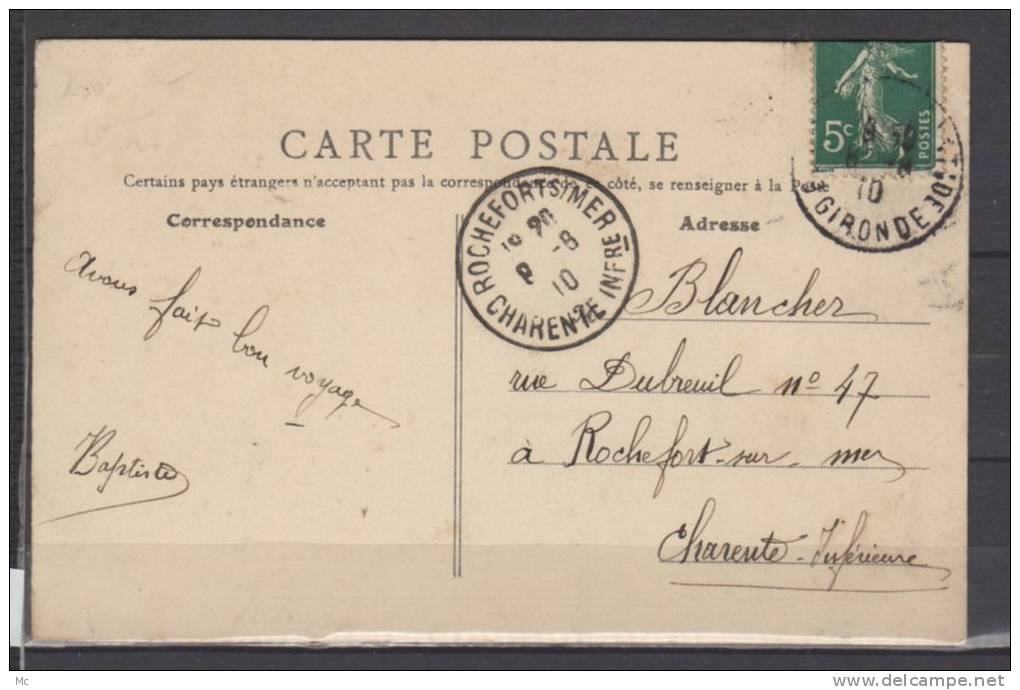 CARTE POSTALE
Certains pays étrangers n'acceptant pas la correspondance de ce côté, se renseigner à la Poste
Correspondance
Adresse
5c
POSTES
GIRONDE
10
ROCHEFORT S/MER
8
10
CHARENTE INFRE
Avons
fait
bon
voyage
Baptiste
Blancher
rue Dubreuil no 47
à Rochefort-sur-mer
Charente-Inférieure
Mc
www.delcampe.net